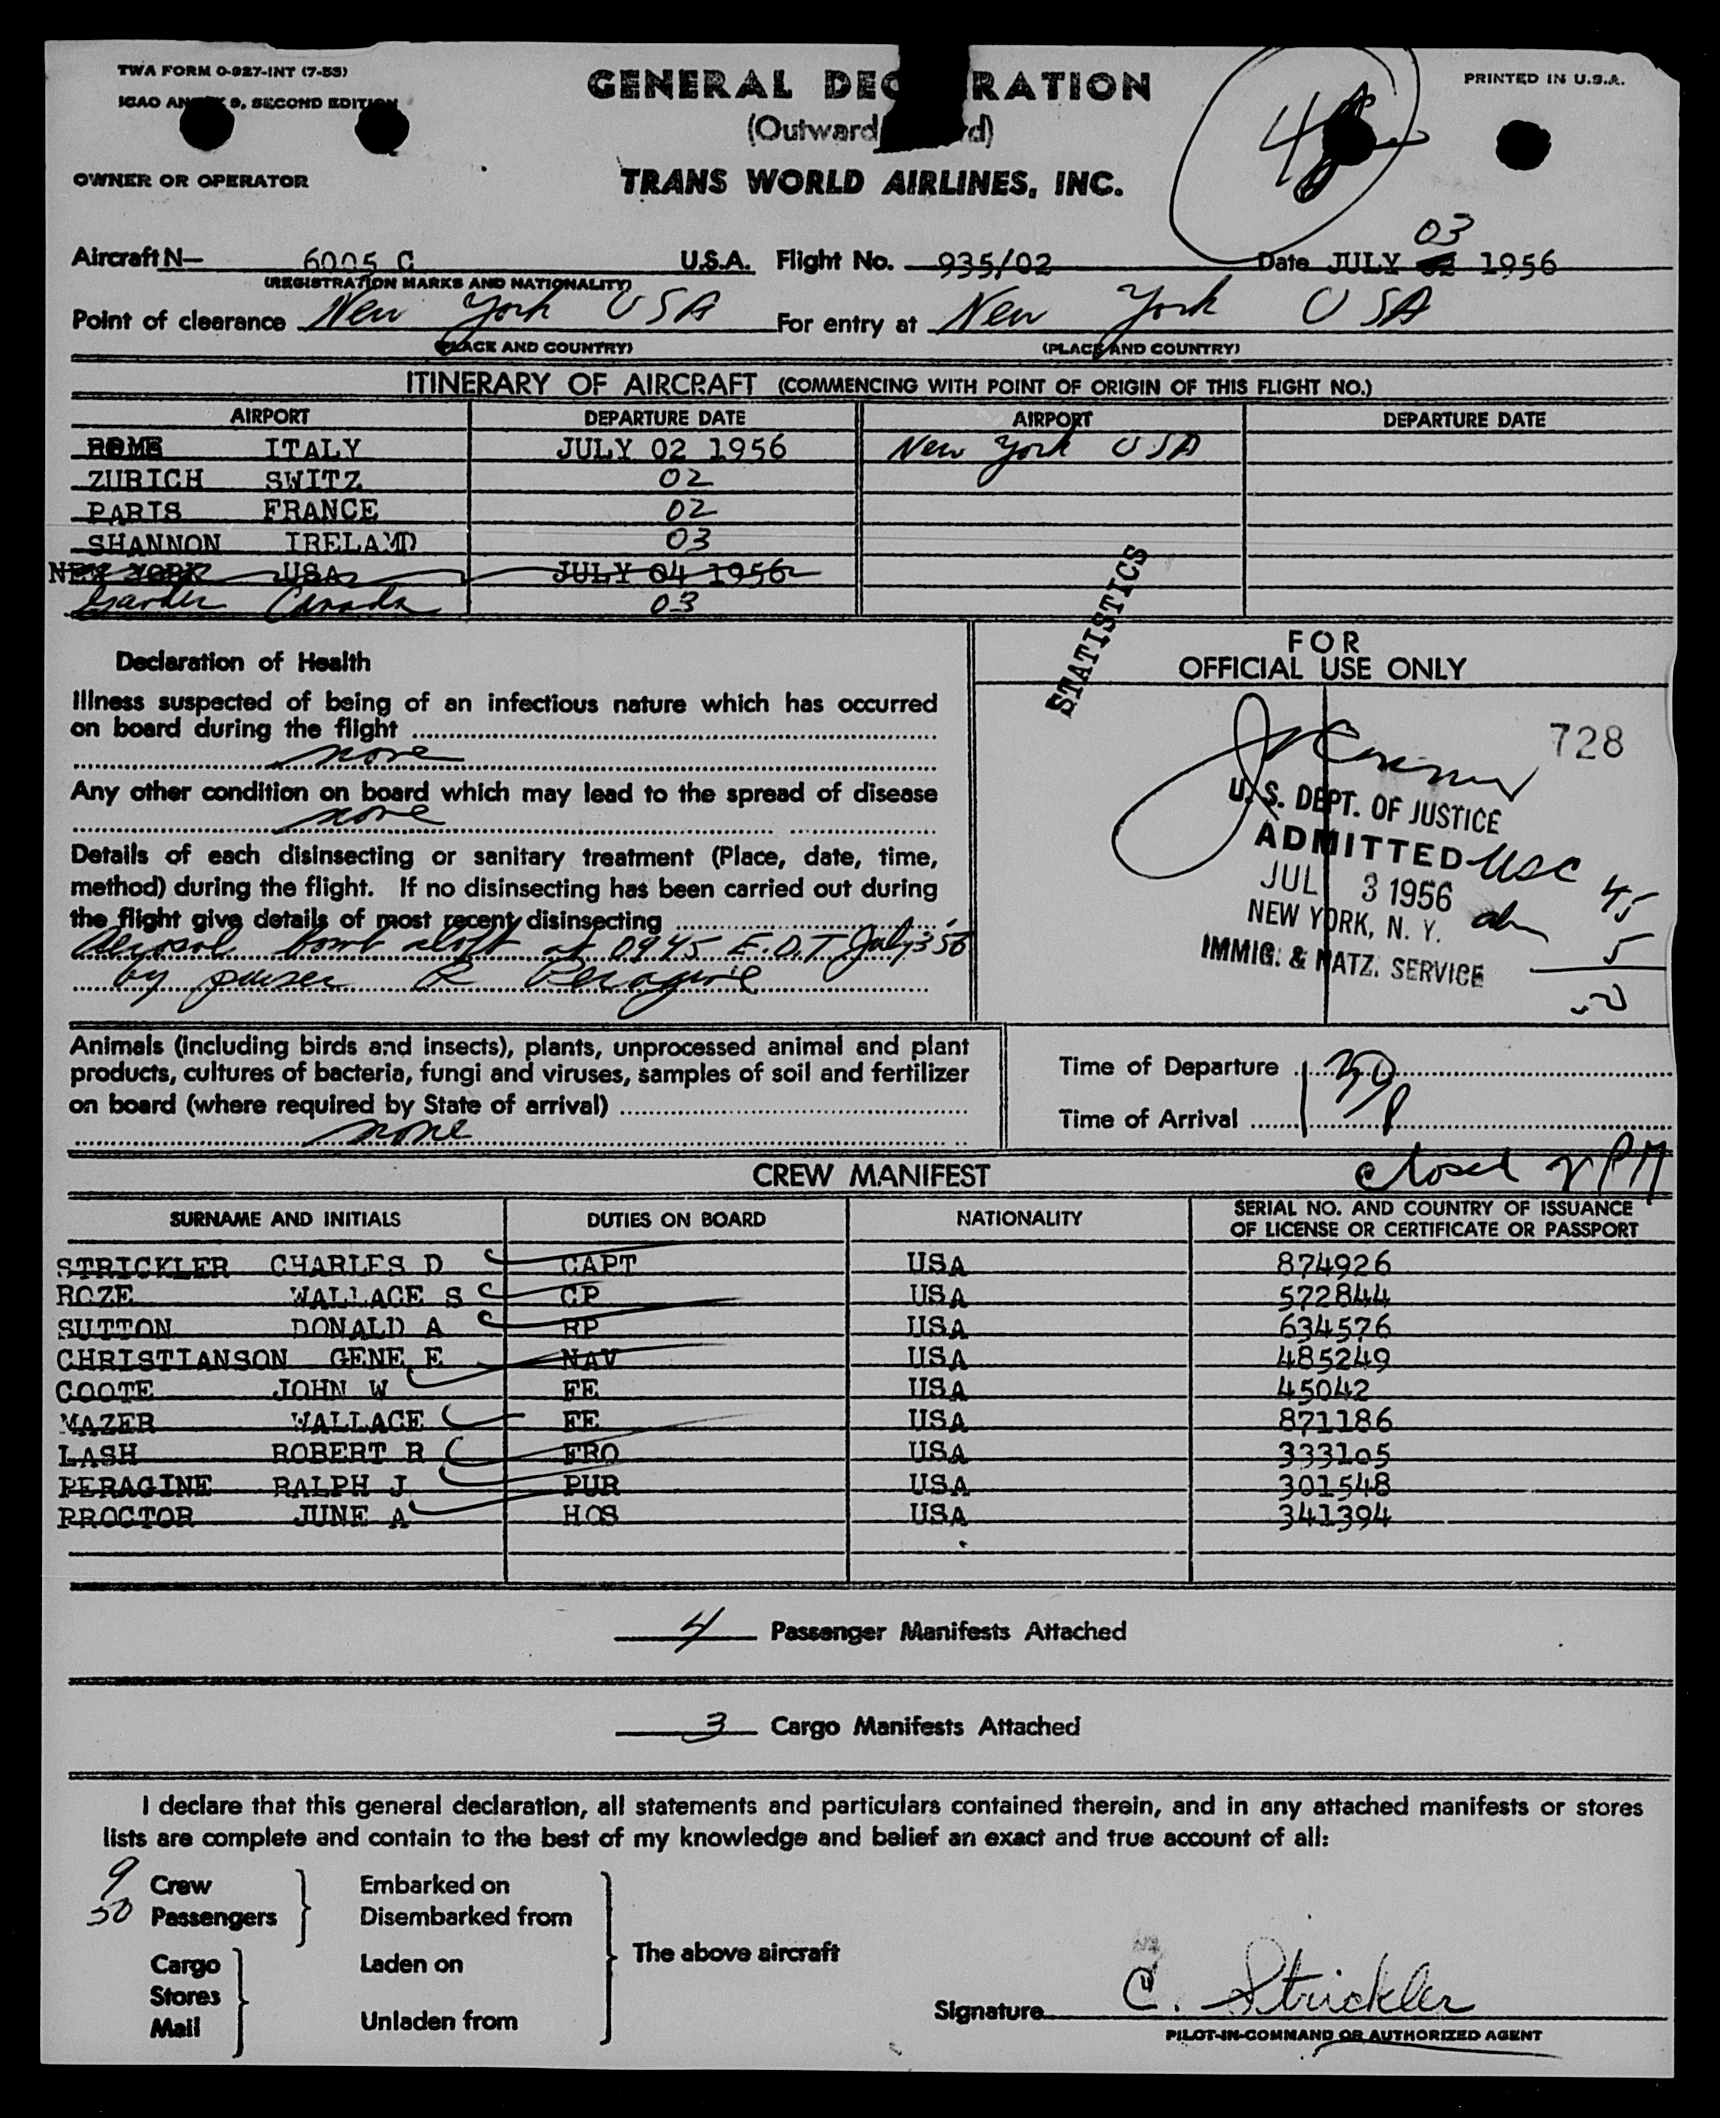 TWA FORM O-927-INT (7-53)
ICAO ANNEX 9, SECOND EDITION
PRINTED IN U.S.A.
GENERAL DEC RATION
(Outward d)
4
OWNER OR OPERATOR
TRANS WORLD AIRLINES, INC.
03
Aircraft N— 6005 C U.S.A. Flight No. 935/02 Date JULY 02 1956
(REGISTRATION MARKS AND NATIONALITY)
Point of clearance New York USA For entry at New York USA
(PLACE AND COUNTRY) (PLACE AND COUNTRY)
ITINERARY OF AIRCRAFT (COMMENCING WITH POINT OF ORIGIN OF THIS FLIGHT NO.)
AIRPORT DEPARTURE DATE AIRPORT DEPARTURE DATE
ROME ITALY JULY 02 1956 New York USA
ZURICH SWITZ 02
PARIS FRANCE 02
SHANNON IRELAND 03
NEW YORK USA JULY 04 1956
Gander Canada 03
STATISTICS
Declaration of Health
Illness suspected of being of an infectious nature which has occurred
on board during the flight
none
Any other condition on board which may lead to the spread of disease
none
Details of each disinsecting or sanitary treatment (Place, date, time,
method) during the flight. If no disinsecting has been carried out during
the flight give details of most recent disinsecting
Aerosol bomb aloft at 0945 E.D.T July 3 '56
by purser R Peragine
FOR
OFFICIAL USE ONLY
728
U. S. DEPT. OF JUSTICE
ADMITTED USC 45
JUL 3 1956
NEW YORK, N. Y. 5
IMMIG. & NATZ. SERVICE
50
Animals (including birds and insects), plants, unprocessed animal and plant
products, cultures of bacteria, fungi and viruses, samples of soil and fertilizer
on board (where required by State of arrival)
none
Time of Departure
Time of Arrival
closed 2 PM
CREW MANIFEST
SURNAME AND INITIALS DUTIES ON BOARD NATIONALITY SERIAL NO. AND COUNTRY OF ISSUANCE
OF LICENSE OR CERTIFICATE OR PASSPORT
STRICKLER CHARLES D CAPT USA 874926
ROZE WALLACE S CP USA 572844
SUTTON DONALD A RP USA 634576
CHRISTIANSON GENE E NAV USA 485249
COOTE JOHN W FE USA 45042
MAZER WALLACE FE USA 871186
LASH ROBERT R FRO USA 333105
PERAGINE RALPH J PUR USA 301548
PROCTOR JUNE A HOS USA 341394
4 Passenger Manifests Attached
3 Cargo Manifests Attached
I declare that this general declaration, all statements and particulars contained therein, and in any attached manifests or stores
lists are complete and contain to the best of my knowledge and belief an exact and true account of all:
9 Crew Embarked on
50 Passengers Disembarked from
The above aircraft
Cargo Laden on
Stores
Mail Unladen from
Signature C. Strickler
PILOT-IN-COMMAND OR AUTHORIZED AGENT